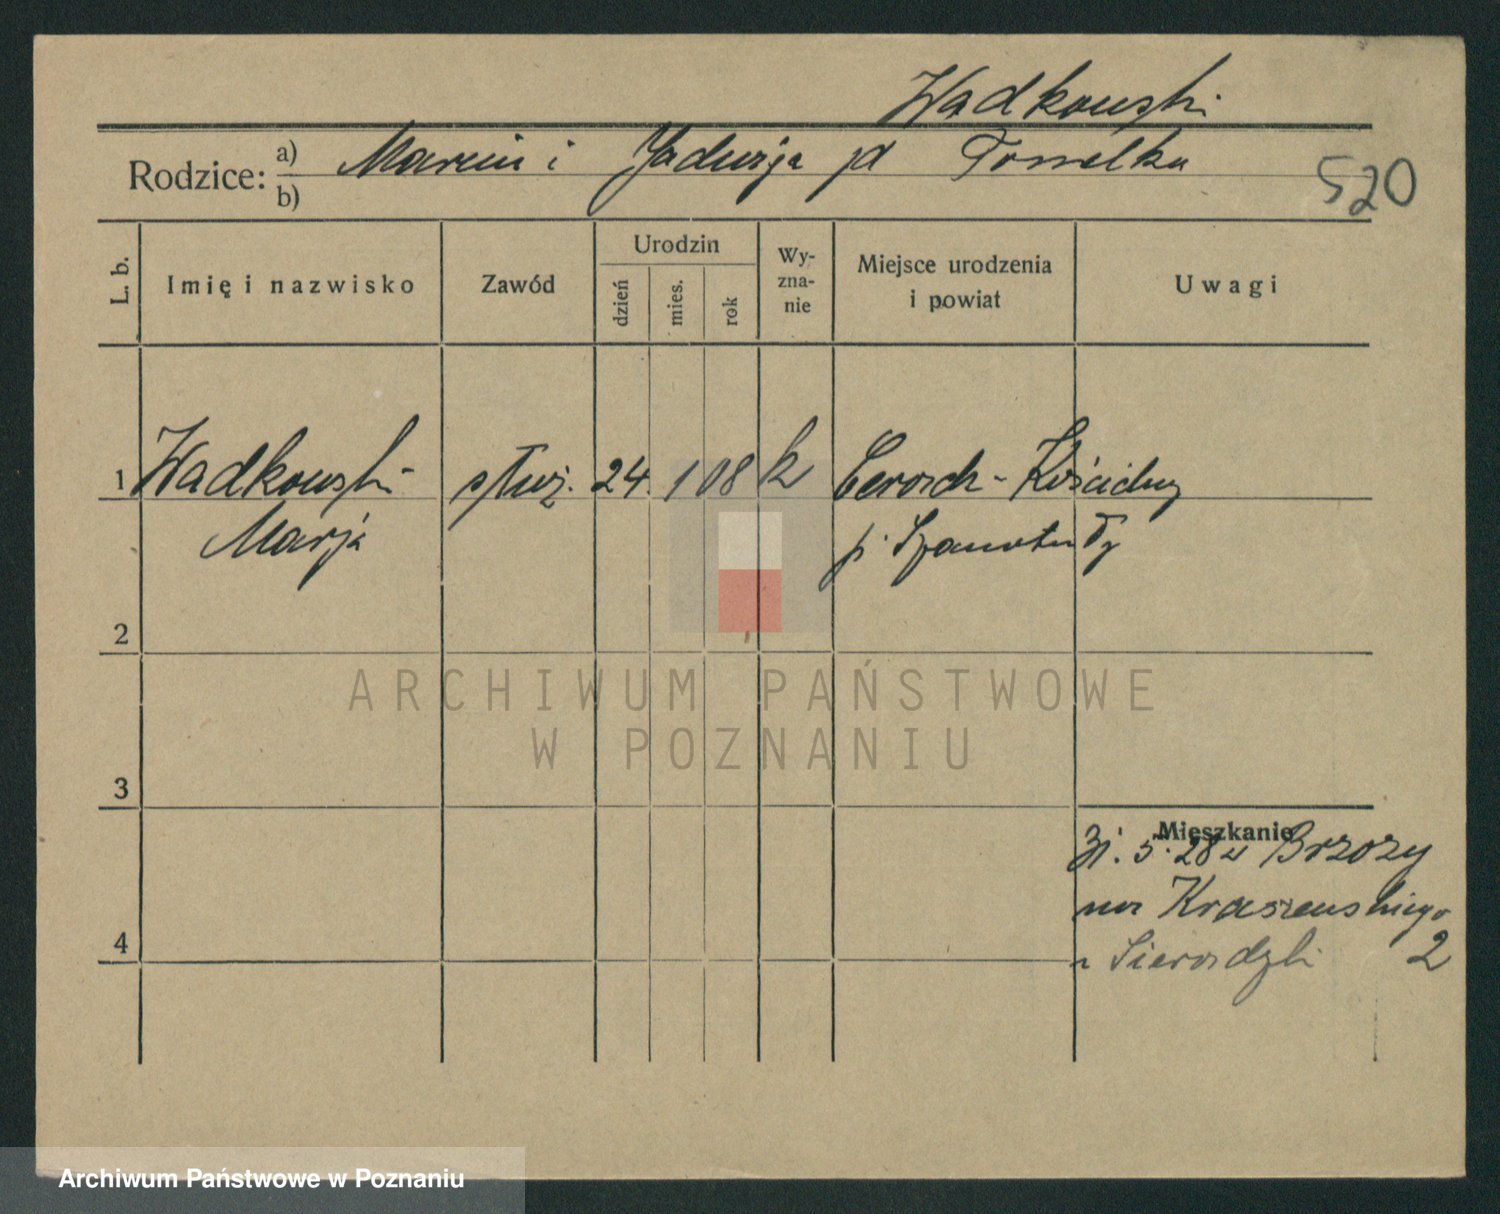 Wadkowski
Rodzice: a) Marcin i Jadwiga pd
b)
520
L. b. Imię i nazwisko Zawód Urodzin dzień mies. rok Wyznanie Miejsce urodzenia i powiat Uwagi
1 Wadkowski służ. 24. 1 08 k Ceradz-Kościelny
Marja p. Szamotuły
2
ARCHIWUM PAŃSTWOWE
W POZNANIU
3
Mieszkanie
5. 28 Brzozy
Kraszewskiego
4
2
Archiwum Państwowe w Poznaniu